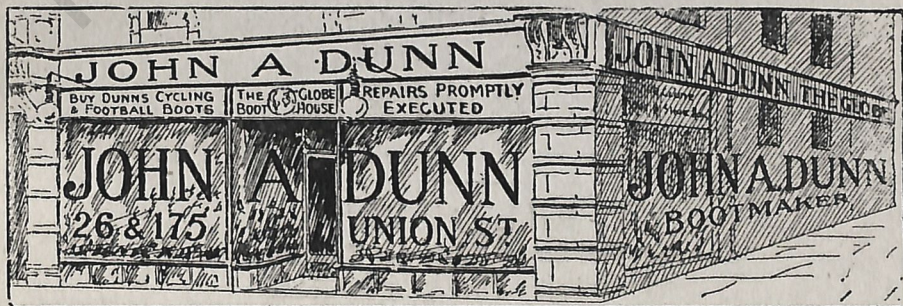 JOHN A DUNN
BUY DUNNS CYCLING
& FOOTBALL BOOTS
THE GLOBE
BOOT HOUSE
REPAIRS PROMPTLY
EXECUTED
JOHN A DUNN
26 & 175 UNION ST
JOHN A DUNN THE GLOBE
JOHN A. DUNN
BOOTMAKER